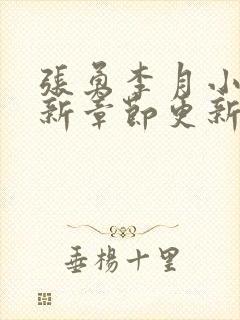 張勇李月小
新章節更新
垂楊十里